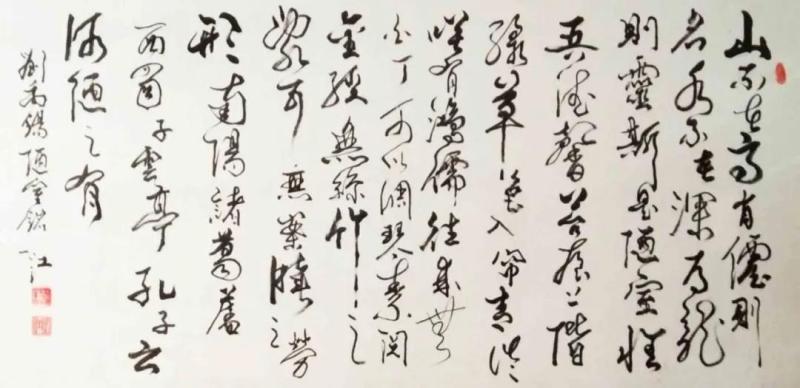 山不在高有僊則
名水不在深有龍
則靈斯是陋室惟
吾德馨苔痕上階
綠草色入帘青談
笑有鴻儒往來無
白丁可以調琴素閱
金經無絲竹之
亂耳無案牘之勞
形南陽諸葛廬
西蜀子雲亭孔子云
何陋之有
劉禹錫陋室銘 江